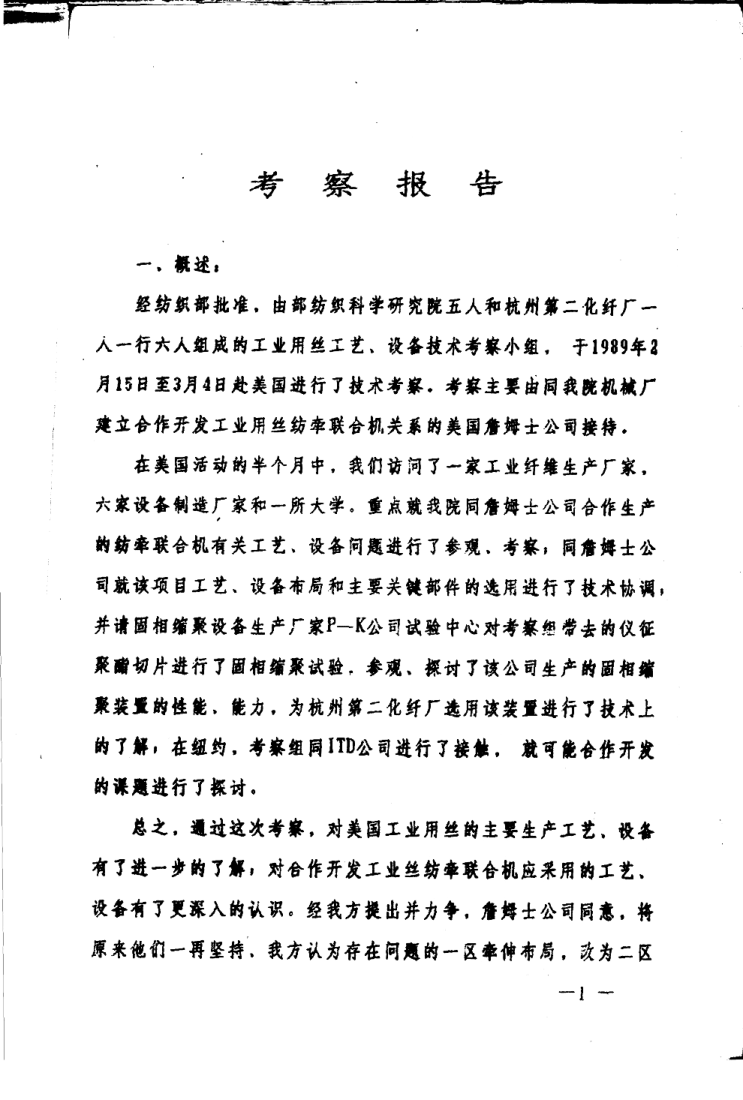 考察报告
一、概述：
经纺织部批准，由部纺织科学研究院五人和杭州第二化纤厂一
人一行六人组成的工业用丝工艺、设备技术考察小组， 于1989年2
月15日至3月4日赴美国进行了技术考察。考察主要由同我院机械厂
建立合作开发工业用丝纺牵联合机关系的美国詹姆士公司接待。
在美国活动的半个月中，我们访问了一家工业纤维生产厂家，
六家设备制造厂家和一所大学。重点就我院同詹姆士公司合作生产
的纺牵联合机有关工艺、设备问题进行了参观、考察；同詹姆士公
司就该项目工艺、设备布局和主要关键部件的选用进行了技术协调；
并请固相缩聚设备生产厂家P—K公司试验中心对考察组带去的仪征
聚酯切片进行了固相缩聚试验，参观、探讨了该公司生产的固相缩
聚装置的性能、能力，为杭州第二化纤厂选用该装置进行了技术上
的了解；在纽约，考察组同ITD公司进行了接触， 就可能合作开发
的课题进行了探讨。
总之，通过这次考察，对美国工业用丝的主要生产工艺、设备
有了进一步的了解；对合作开发工业丝纺牵联合机应采用的工艺、
设备有了更深入的认识。经我方提出并力争，詹姆士公司同意，将
原来他们一再坚持、我方认为存在问题的一区牵伸布局，改为二区
—1 —